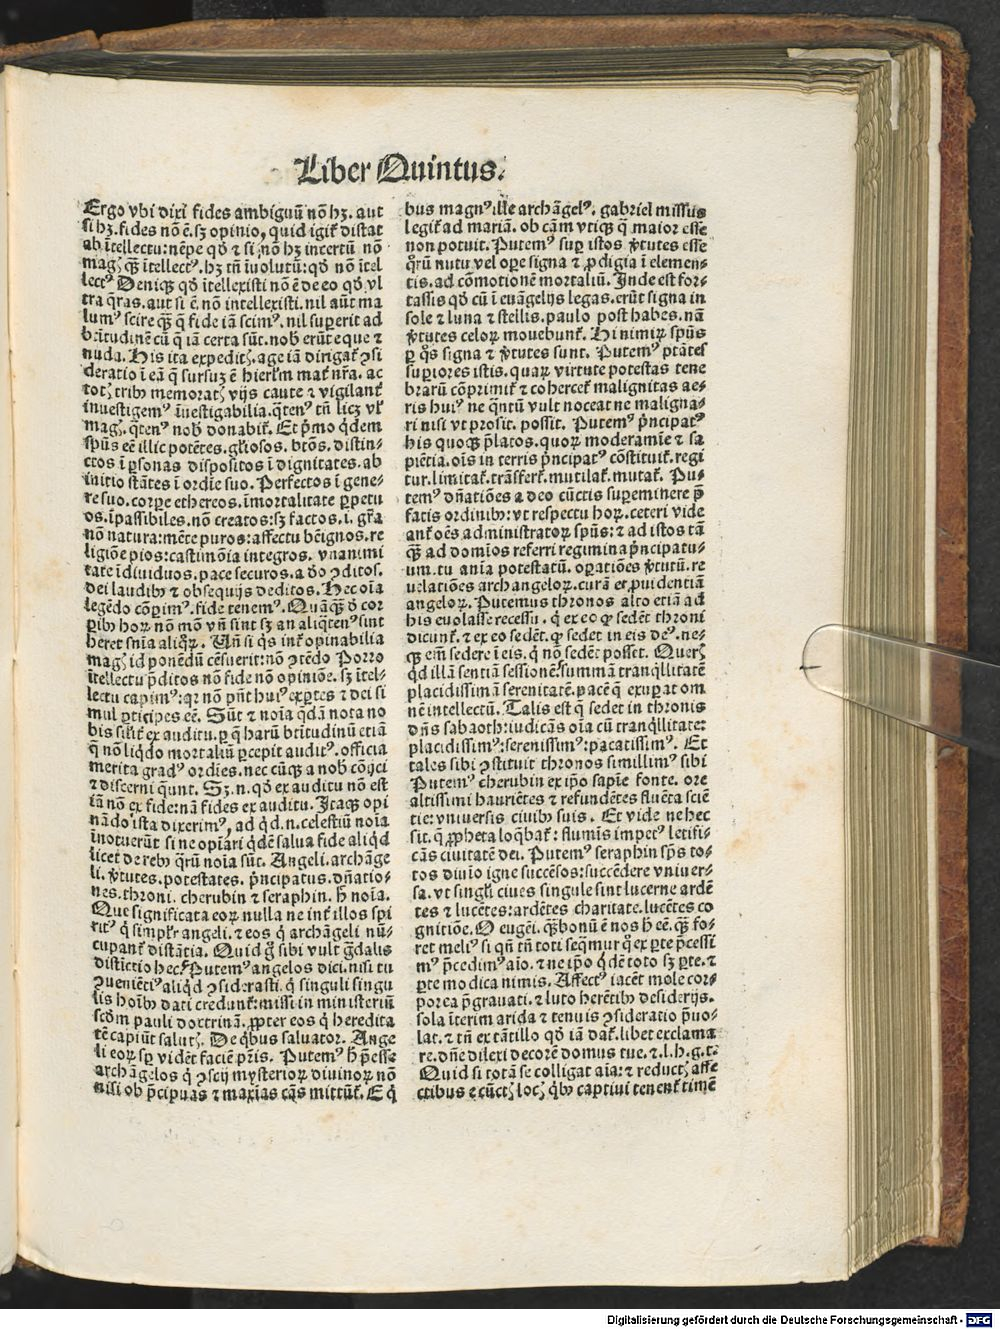 Liber Quintus.
Ergo vbi dixi fides ambiguū nō hꝫ. aut
si hꝫ. fides nō ē. sꝫ opinio, quid igiť distat
ab ītellectu: nēpe qď ⁊ si nō hꝫ incertū nō
magꝭ qꝫ̄ ītellectꝰ. hꝫ tn̄ īuolutū: qď nō ītel
lectꝰ Deniqꝫ qď ītellexisti nō ē de eo qď vl
tra q̄ras. aut si ē. nō intellexisti. nil aūt ma
lumꝰ scire qꝫ̄ q̄ fide iā scimꝰ. nil suꝑerit ad
bt̄itudinē cū q̄ iā certa sūt. nob̄ erūt eque ⁊
nuda. His ita expeditꝭ. age iā dirigať ꝯsi
deratio ī eā q̄ sursuꝫ ē hierl̄m mať nr̄a. ac
totꝭ tribꝫ memoratꝭ vijs caute ⁊ vigilanť
inuestigemꝰ īuestigabilia. q̄tenꝰ tn̄ licꝫ vl̓
magꝭ. q̄tenꝰ nob̄ donabiť. Et p̄mo q̄dem
spūs eē illic potētes. gl̓iosos. btōs. distin-
ctos ī ꝑsonas dispositos ī dignitates. ab
initio stātes ī ordīe suo. Perfectos ī gene-
re suo. corꝑe ethereos. īmortalitate ꝑpetu
os. īpassibiles. nō creatos: sꝫ factos. i. gr̄a
nō natura: mēte puros: affectu bēignos. re
ligiōe pios: castimōia integros. vnanimi
tate īdiuiduos. pace securos. a dō ꝯditos.
dei laudibꝫ ⁊ obsequijs deditos. Hec oīa
legēdo cōꝑimꝰ. fide tenemꝰ. Quāqꝫ̄ ď cor
ꝑibꝫ hoꝝ nō mō vn̄ sint sꝫ an aliq̄tenꝰ sint
heret snīa aliq̄ꝝ. Un̄ si q̓s inť opinabilia
magꝭ id ponēdū cēsuerit: nō ꝯtēdo Porro
ītellectu p̄ditos nō fide nō opiniōe. sꝫ ītel-
lectu capimꝰ: qꝛ nō pn̄t huiꝰ exꝑtes ⁊ dei si
mul ꝑticipes eē. Sūt ⁊ noīa q̄dā nota no
bis sil̓iť ex auditu. ꝑ q̄ harū bt̄itudinū etiā
q̄ nō liq̓do mortaliū ꝑcepit auditꝰ. officia
merita gradꝰ ordīes. nec cūqꝫ a nob̄ cōijci
⁊ discerni q̄unt. Sꝫ. n. qď ex auditu nō est
iā nō ex fide: nā fides ex auditu. Itaqꝫ opi
nādo ista dixerimꝰ, ad q̓d. n. celestiū noīa
īnotuerūt si ne opīari q̓dē salua fide aliq̓d
licet de rebꝫ q̄rū noīa sūt. Angeli. archāge
li. v̓tutes. potestates. p̄ncipatus. dn̄atio-
nes. throni. cherubin ⁊ seraphin. h̄ noīa.
Que significata eoꝝ nulla ne inť illos spi
ritꝰ q̓ simpl̓r angeli. ⁊ eos q̓ archāgeli nū-
cupanť distātia. Quid g̊ sibi vult ḡdalis
distīctio hec? Putemꝰ angelos dici. nisi tu
ꝯueniētiꝰ aliq̓d ꝯsiderasti. q̓ singuli singu
lis hoībꝫ dati creduntur: missi in ministeriū
scḋm pauli doctrinā. ꝓpter eos q̓ heredita
tē capiūt salutꝭ. De q̓bus saluator. Ange
li eoꝝ sꝑ vidēt faciē pr̄is. Putemꝰ h̄ p̄esse
archāgelos q̓ ꝯscij mysterioꝝ diuinoꝝ nō
nisi ob p̄cipuas ⁊ maxīas cās mittūť. E q̓
bus magnꝰ ille archāgelꝰ. gabriel missus
legiť ad mariā. ob cām vtiqꝫ q̄ maior esse
non potuit. Putemꝰ suꝑ istos v̓tutes esse
q̊rū nutu vel oꝑe signa ⁊ ꝓdigia ī elemen-
tis. ad cōmotionē mortaliū. Inde est for-
tassis qď cū ī euāgelijs legas. erūt signa in
sole ⁊ luna ⁊ stellis. paulo post habes. nā
v̓tutes celoꝝ mouebunť. Hi nimiꝝ spūs
ꝑ q̊s signa ⁊ v̓tutes sunt. Putemꝰ ptātes
suꝑiores istis. quaꝝ virtute potestas tene
braꝝ cōprimiť ⁊ coherceť malignitas ae-
ris huiꝰ ne q̄ntū vult noceat ne maligna-
ri nisi vt prosit. possit. Putemꝰ p̄ncipatꝰ
his quoqꝫ p̄latos. quoꝝ moderamīe ⁊ sa
piētia. oīs in terris p̄ncipatꝰ cōstituiť. regi
tur. limitať. trāsferť. mutilať. mutať. Pu-
temꝰ dn̄atiōes adeo cūctis suꝑeminere p̄
fatis ordinibꝫ: vt respectu hoꝝ. ceteri vide
anť oēs administratoꝝ spūs: ⁊ ad istos tā
qꝫ̄ ad domīos referri regimina p̄ncipatu-
um. tutamina potestatū. oꝑatiōes v̓tutū. re
uelatiōes archangeloꝝ. curā et ꝓuidentiā
angeloꝝ. Putemus thronos alto etiā ad
his euolasse recessu. q̓ ex eo ꝙ sedēt throni
dicunť. ⁊ ex eo sedēt. ꝙ sedet in eis deꝰ. ne-
qꝫ em̄ sedere ī eis. q̓ nō sedēt posset. Querꝭ
q̓d illā sentiā sessionē. summā tranq̓llitatē
placidissimā serenitatē. pacē q̄ exuꝑat om
nē intellectū. Talis est q̓ sedet in thronis
dn̄s sabaoth: iudicās oīa cū tranq̓llitate:
placidissimꝰ: serenissimꝰ: pacatissimꝰ. Et
tales sibi ꝯstituit thronos simillimꝰ sibi
Putemꝰ cherubin ex ip̄o sapīe fonte. ore
altissimi hauriētes ⁊ refundētes fluēta sciē
tie: vniuersis ciuibꝫ suis. Et vide ne hec
sit. q̄ ꝓpheta loq̄bať: flumīs impetꝰ letifi-
cās ciuitatē dei. Putemꝰ seraphin sp̄s to-
tos diuīo igne succēsos: succēdere vniuer-
sa. vt singl̓i ciues singule sint lucerne ardē
tes ⁊ lucētes: ardētes charitate. lucētes co
gnitiōe. O eugeni. qꝫ̄ bonū ē nos h̄ eē. qꝫ̄ fo-
ret meliꝰ si qn̄ tn̄ toti seq̄mur q̊ ex ꝑte p̄cessi
mꝰ p̄cedimꝰ aīo. ⁊ ne ip̄o q̓dē toto sꝫ ꝑte. ⁊
ꝑte modica nimis. Affectꝰ iacēt mole cor-
porea p̄grauati. ⁊ luto herētibꝫ desiderijs.
sola īterim arida ⁊ tenuis ꝯsideratio p̄uo-
lat. ⁊ tn̄ ex tātillo qď iā dať. libet exclama
re. dn̄e dilexi decorē domus tue. ⁊. l. h. g. t.
Quid si totā se colligat aīa: ⁊ reductꝭ affe
ctibus e cūctꝭ locꝭ q̓bꝫ captiui tenenť timē
Digitalisierung gefördert durch die Deutsche Forschungsgemeinschaft - DFG